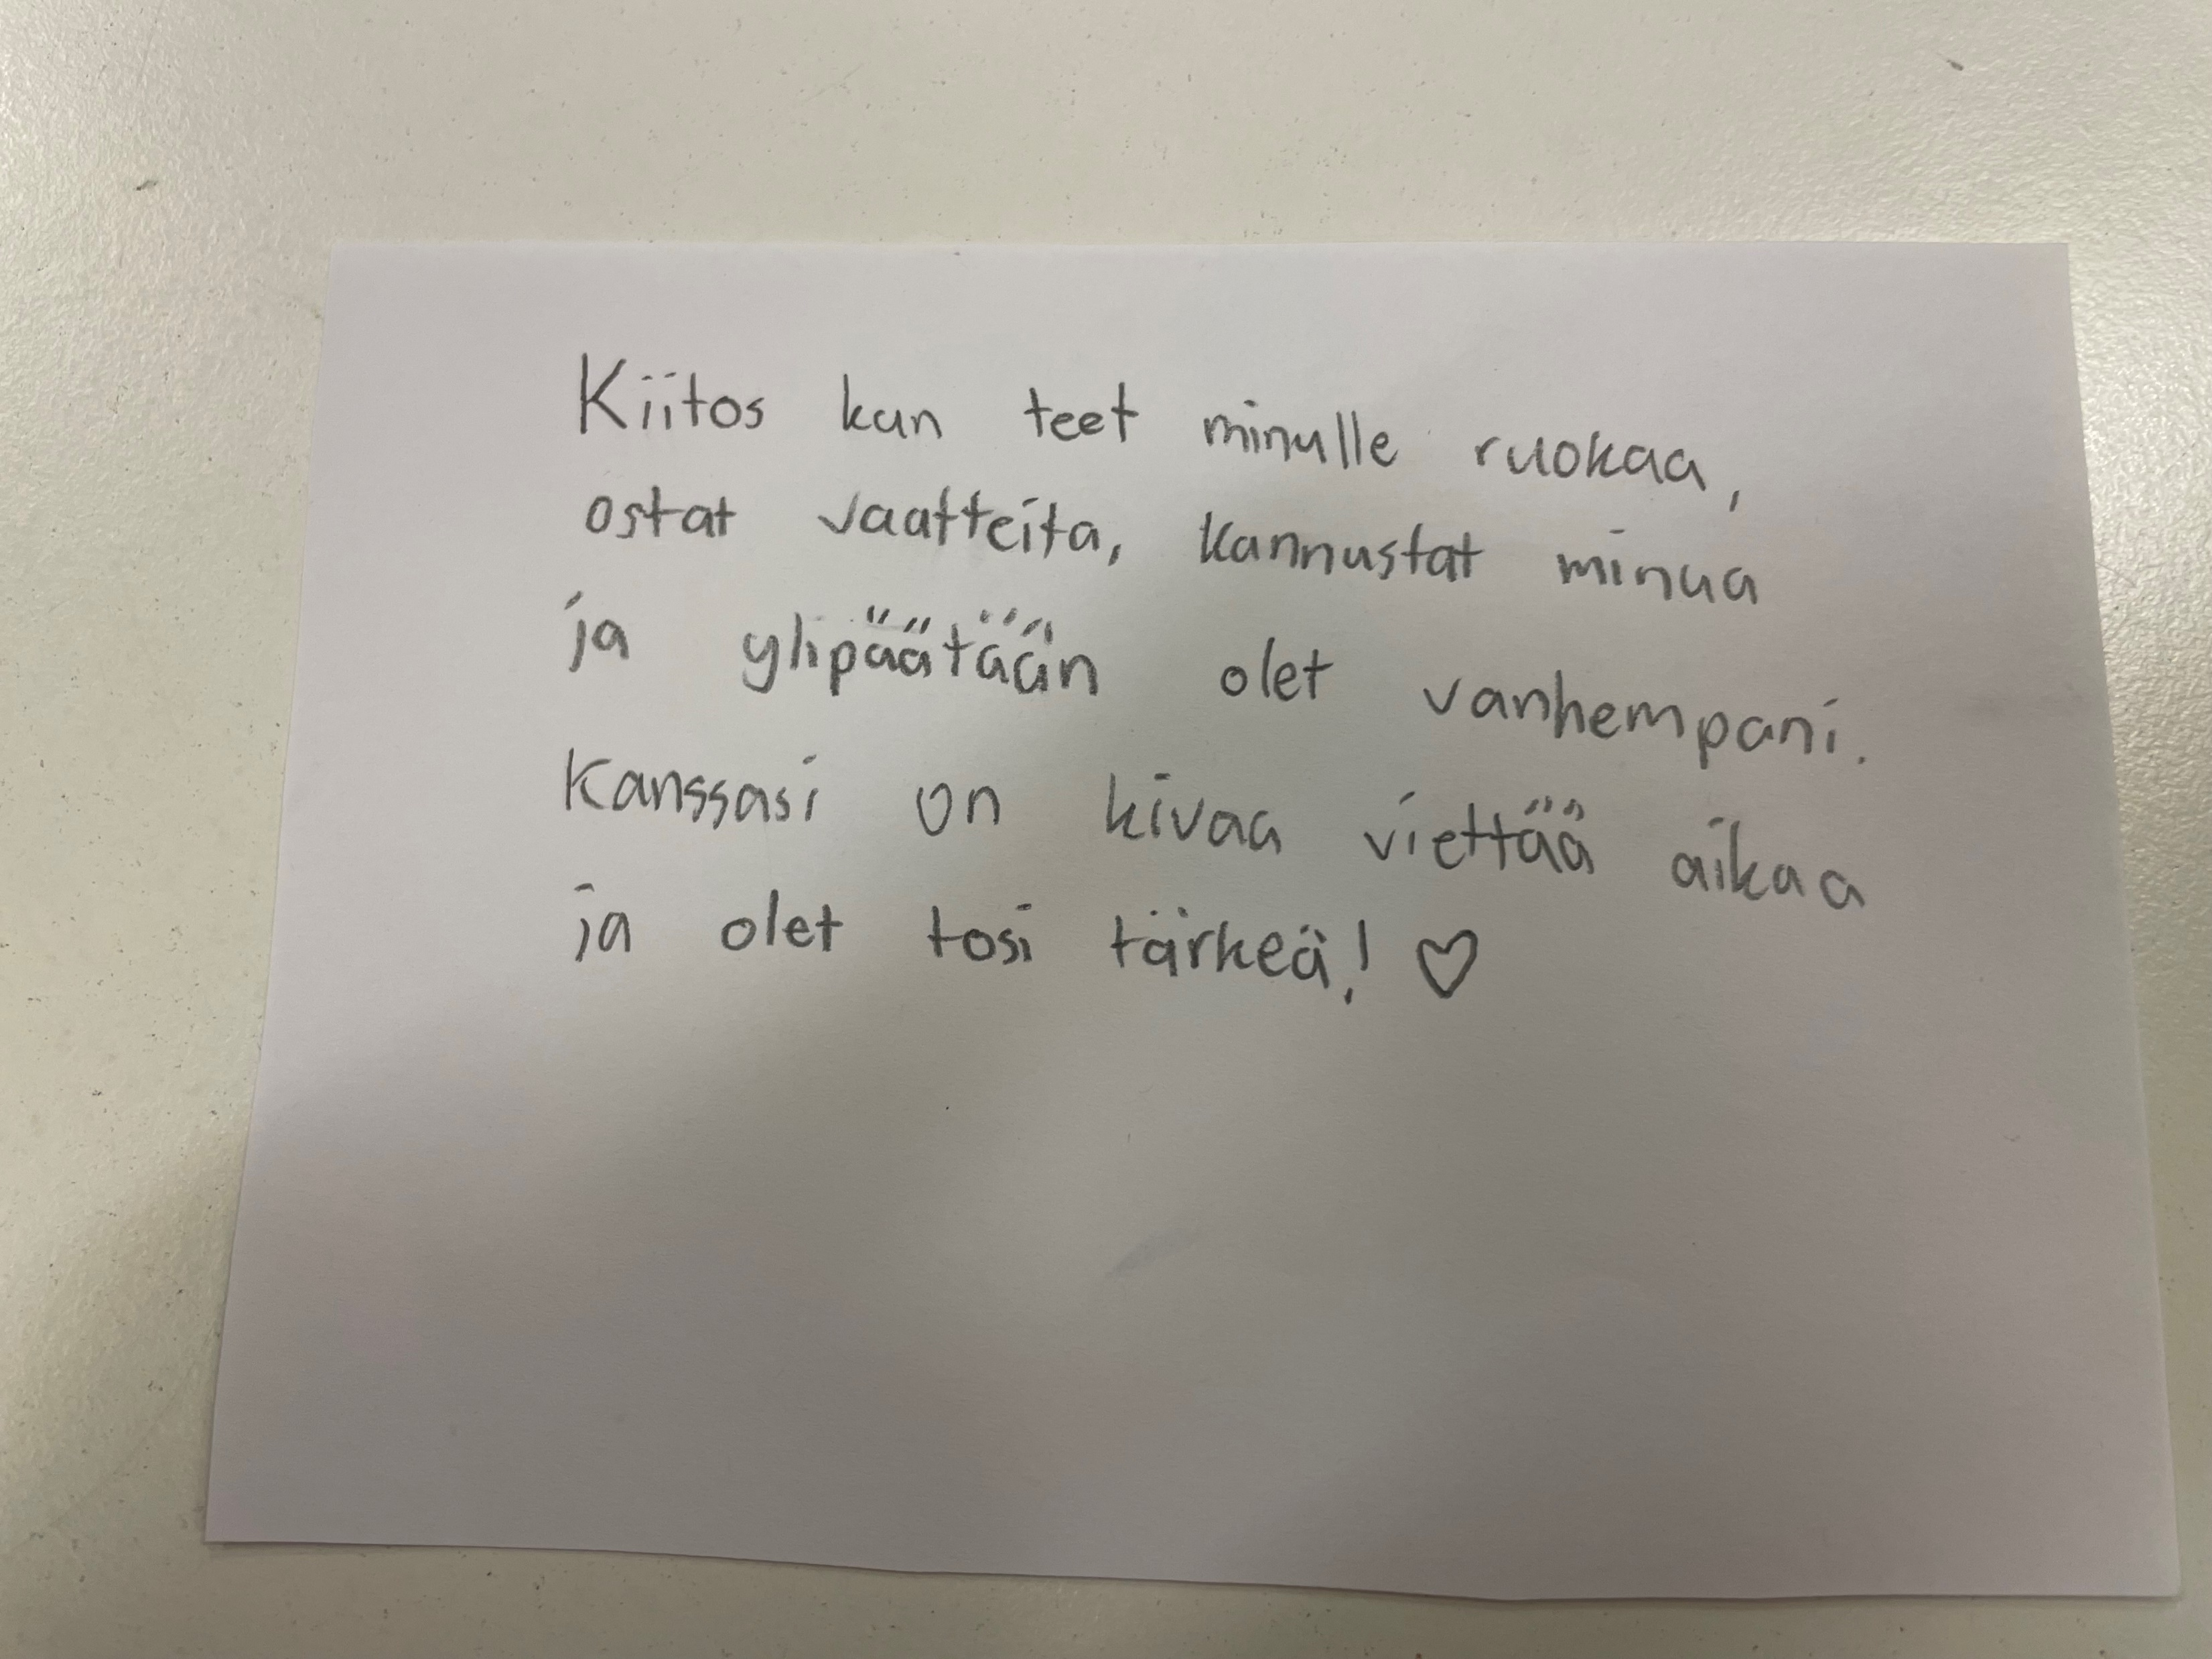 Kiitos kun teet minulle ruokaa,
ostat vaatteita, kannustat minua
ja ylipäätään olet vanhempani.
Kanssasi on kivaa viettää aikaa
ja olet tosi tärkeä! ♡